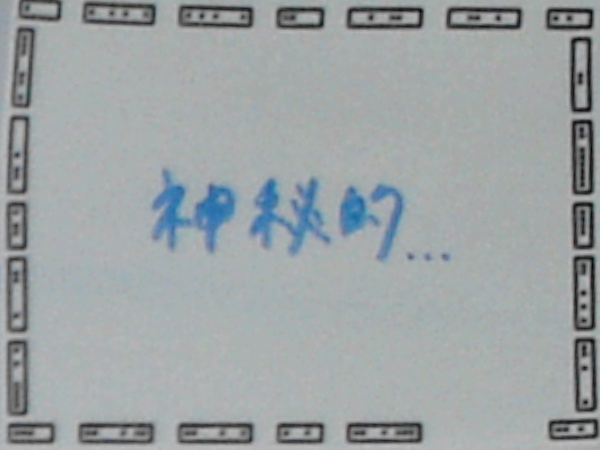 神秘的...